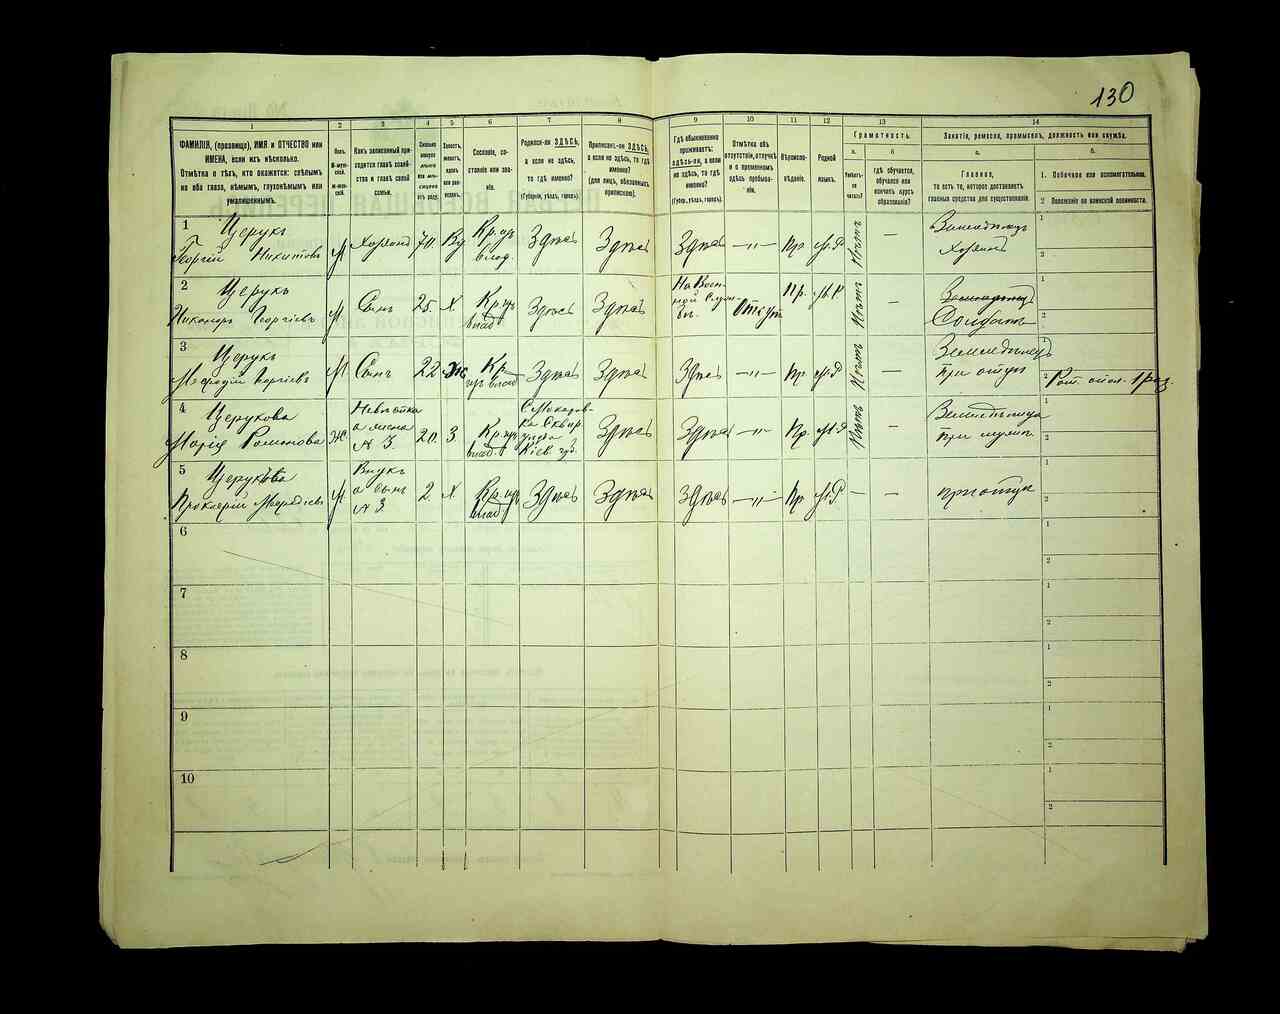 130
1 2 3 4 5 6 7 8 9 10 11 12 13 14
ФАМИЛІЯ, (прозвище), ИМЯ и ОТЧЕСТВО или
ИМЕНА, если ихъ нѣсколько.
Отмѣтка о тѣхъ, кто окажется: слѣпымъ
на оба глаза, нѣмымъ, глухонѣмымъ или
умалишеннымъ.
Полъ.
Какъ записанный при-
ходится главѣ хозяй-
ства и главѣ своей
семьи.
Сколько
Сословіе, со-
стояніе или зва-
ніе.
Родился-ли ЗДѢСЬ,
а если не здѣсь,
то гдѣ именно?
(Губернія, уѣздъ, городъ).
Приписанъ-ли ЗДѢСЬ,
а если не здѣсь, то гдѣ
именно?
(для лицъ, обязанныхъ
припискою).
Гдѣ обыкновенно
проживаетъ:
здѣсь-ли, а если
не здѣсь, то гдѣ
именно?
(Губер., уѣздъ, городъ).
Отмѣтка объ
отсутствіи, отлучкѣ
и о временномъ
здѣсь пребыва-
ніи.
Вѣроиспо-
вѣданіе.
Родной
языкъ.
Грамотность.
а.
б
Умѣетъ-
ли
читать?
гдѣ обучается,
обучался или
кончилъ курсъ
образованія?
Занятіе, ремесло, промыселъ, должность или служба.
а.
б.
Главное,
то есть то, которое доставляетъ
главныя средства для существованія.
1. Побочное или вспомогательное.
2 Положеніе по воинской повинности.
1 Церукъ
Георгій Никитовъ М Хозяинъ 70 Вд Кр. из влад. Здѣсь Здѣсь Здѣсь —"— Пр М.Р Нѣтъ — Земледѣлец Хозяинъ
1
2
2 Церукъ
Никаноръ Георгіевъ М Сынъ 25. Х Кр. из влад Здѣсь Здѣсь На Воен- ной Служ- бѣ. Отсут Пр. М.Р Нѣтъ — Земледѣлец Солдатъ
2
3 Церукъ
Георгіевъ М Сынъ 22 Кр. из влад Здѣсь Здѣсь Здѣсь —"— Пр М.Р Нѣтъ — Земледѣлецъ при отцѣ
1
2 Рат. опол. 1 раз.
4 Церукова
Марія Романова Ж. Невѣстка а жена № 3. 20. З. Кр. из влад. Сквир. уѣзда Кіев. губ. Здѣсь Здѣсь —"— Пр. М.Р Нѣтъ — при мужѣ
1
2
5 Церукова
М Внукъ а сынъ № 3 2 Х Кр. из влад Здѣсь Здѣсь Здѣсь —"— Пр М.Р — — при отцѣ
1
2
6
1
2
7
1
2
8
1
2
9
1
2
10
1
2